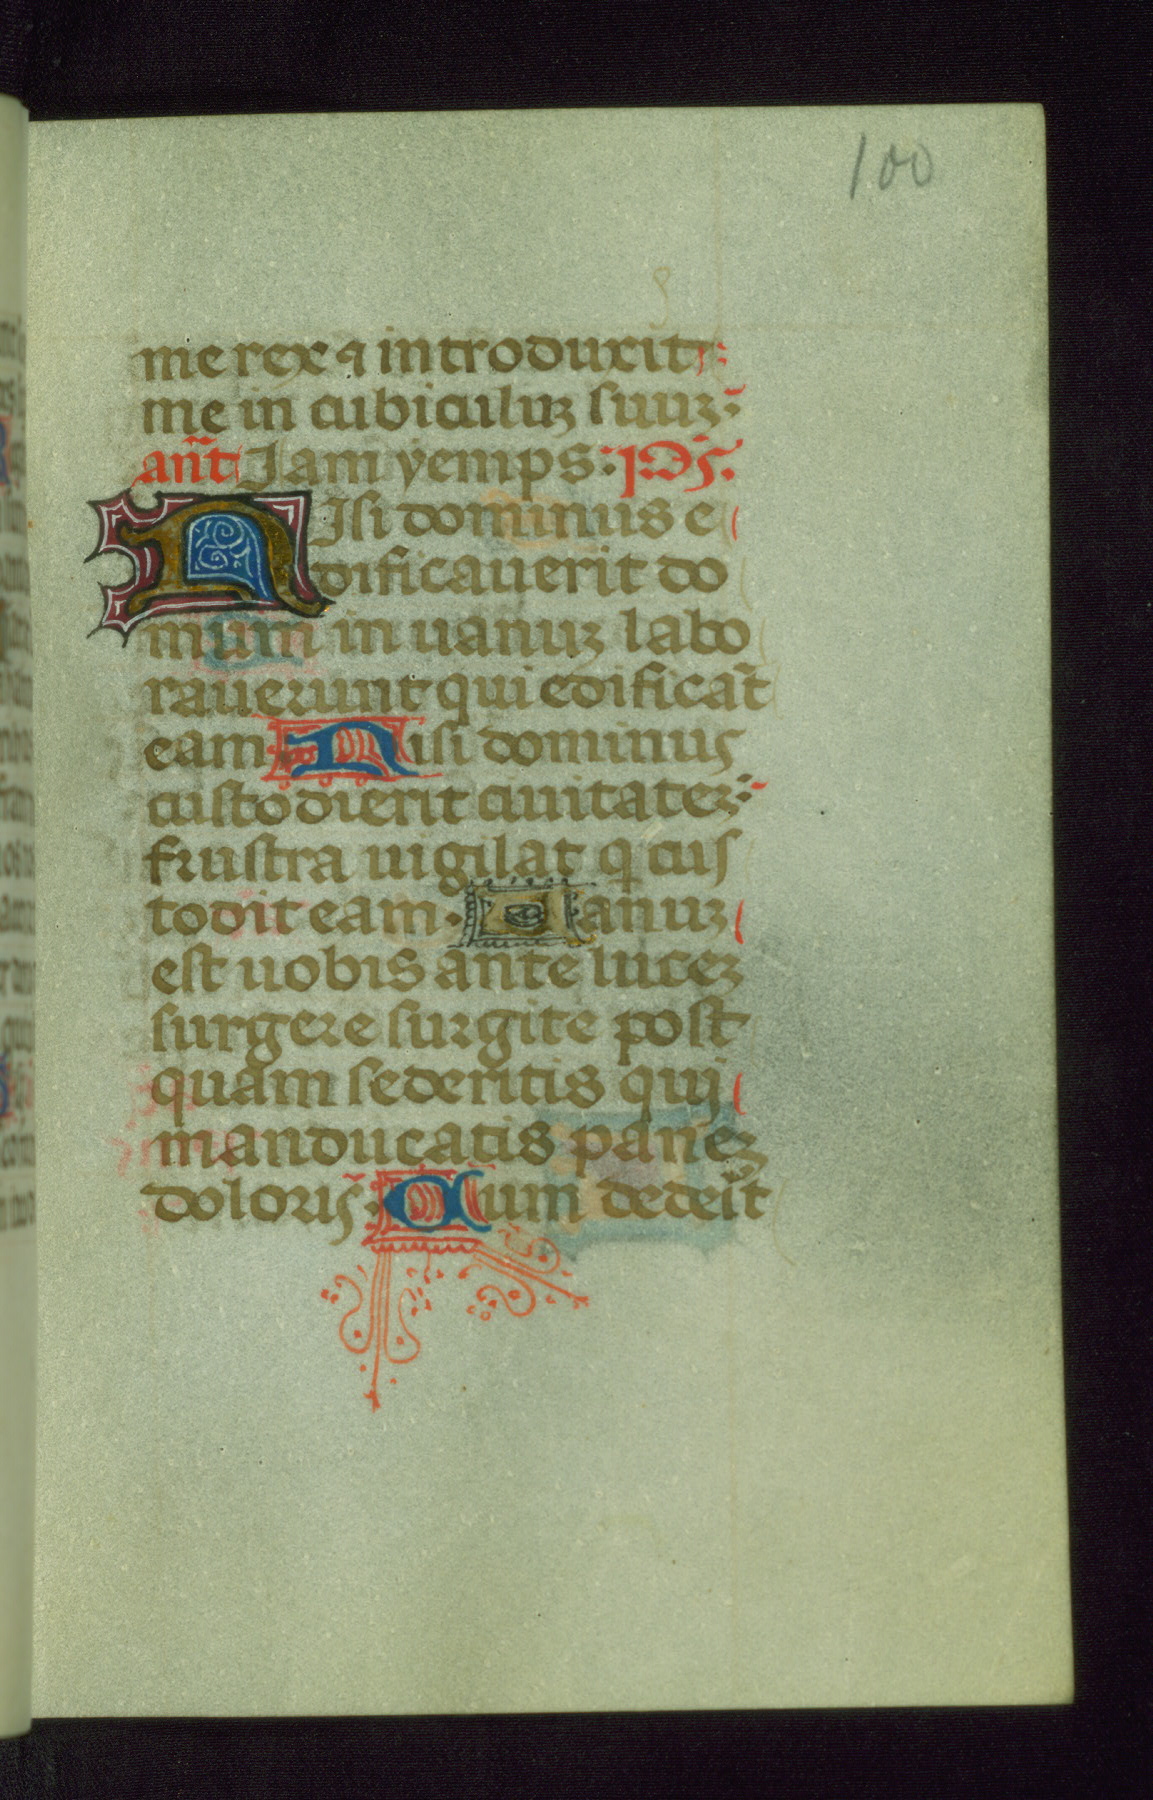 100
me rex ⁊ introduxit
me in cubiculuʒ suuʒ:
an̄t Jam yemps. ps̄.
NIsi dominus e
dificauerit do
mum in uanuʒ labo
rauerunt qui edificāt
eam Nisi dominus
custodierit ciuitateʒ:
frustra uigilat q cus
todit eam. Vanuʒ
est uobis ante luceʒ
surgere surgite post
quam sederitis qui
manducatis paneʒ
doloris. Cum dederīt